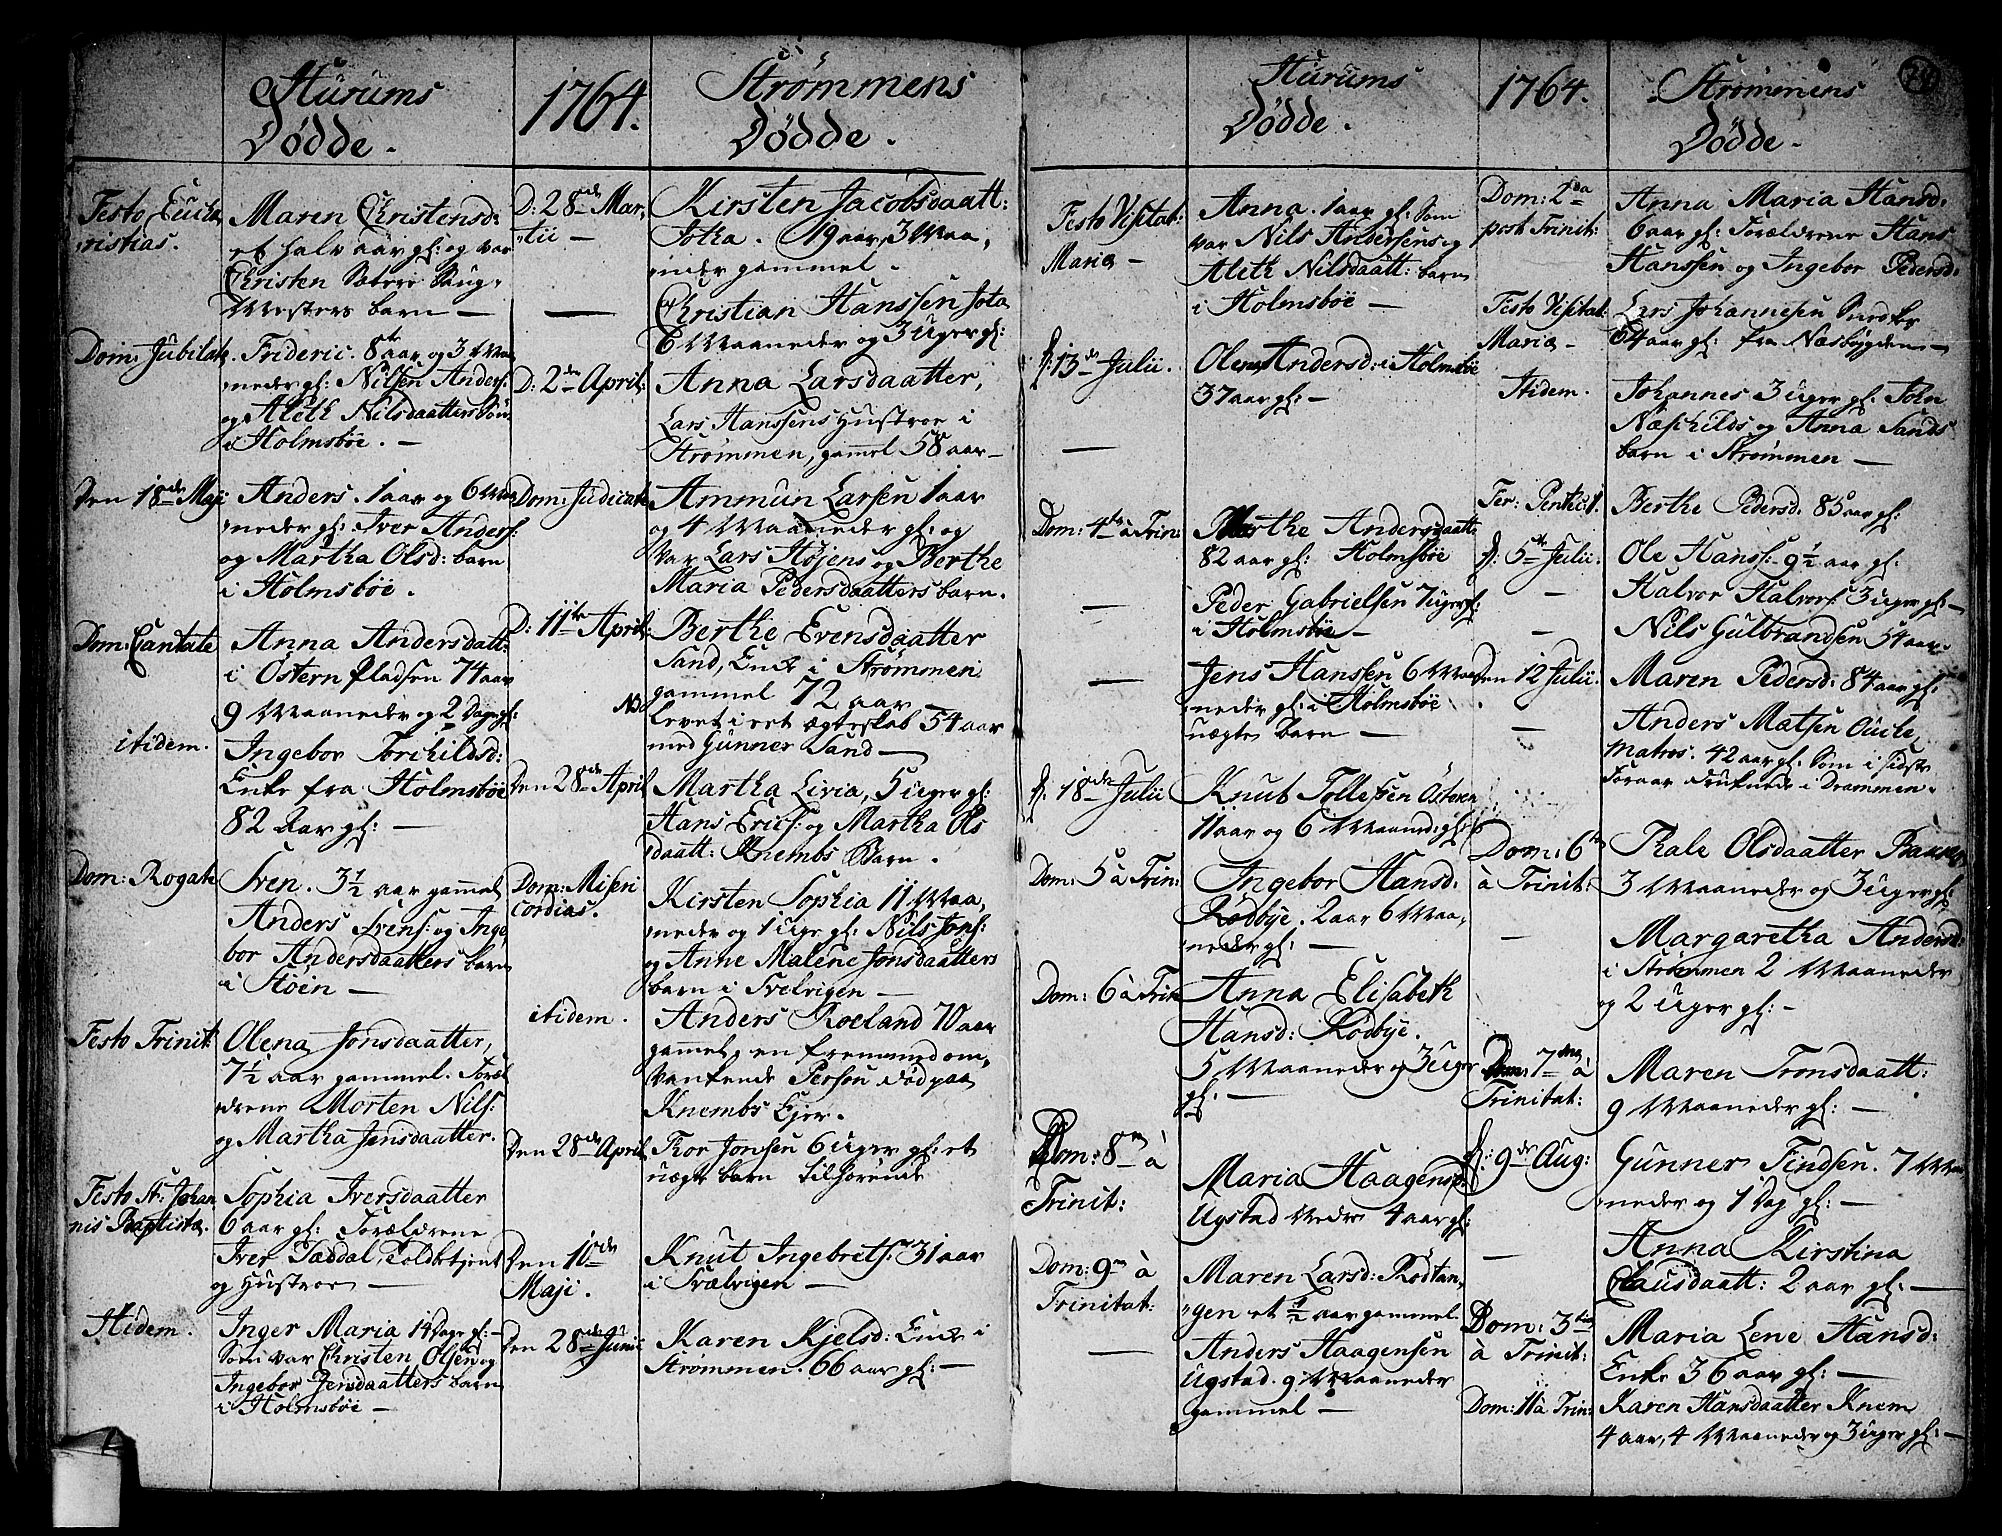 Hurums
Dödde.
Festo Eucha
ristias.
Maren Christensd:
et halv aar gl: og var
Christen Sæteri Saug,
Mesters barn —
Dom: Jubilate
Frideric. 8te aar og 3 Maa
neder gl: Nilsen Anders:
og Aleth Nilsdaatters Søn
i Holmsböe. —
Den 18de Maji
Anders. 1 aar og 6 Maa
neder gl: Iver Anders:
og Martha Olsd: barn
i Holmsböe.
Dom: Cantate
Anna Andersdatt:
i Östern Pladsen 74 aar
9 Maaneder og 2 Dage gl:
itidem.
Ingebor Torchildsd:
Enke fra Holmsböe
82 Aar gl: —
Dom: Rogate
Sven. 3½ aar gammel
Anders Svens: og Inge
bor Andersdaatters barn
i Støin —
Festo Trinit:
Olena Jonsdaatter,
7½ aar gammel. Foræl
drene Morten Nils:
og Martha Jensdaatter.
Festo St: Johan
nis Baptista.
Sophia Iversdaatter
6 aar gl: Forældrene
Iver Taddal, Toldbetjent
og Hustroe —
Itidem.
Inger Maria 14 Dage gl: —
Som var Christen Olsen og
Ingebor Jensdaatters barn
i Holmsböe —
1764.
Strømmens
Dödde.
D: 28de Mar,
tii —
Kirsten Jacobsdaatt:
Jotha. 19 aar, 3 Maa,
neder gammel.
—
Christian Hanssen Jota
6 Maaneder og 3 uger gl:
D: 2den April:
Anna Larsdaatter,
Lars Hanssens Hustroe i
Strømmen, gammel 58 aar —
Dom: Judica
Ammun Larsen 1 aar
og 4 Maaneder gl: og
var Lars Højens og Berthe
Maria Pedersdaatters barn.
D: 11te April:
Berthe Evensdaatter
Sand, Enke i Strømmen
gammel 72 aar —
NB
levet i et ægteskab 54 aar
med Gunner Sand —
Den 28de April
Martha Livia, 5 uger gl:
Hans Erics: og Martha Ols
daatt: Knembs Barn.
Dom: Miseri
cordias.
Kirsten Sophia 11 Maa,
neder og 1 uge gl: Nils Jons:
og Anne Malene Jonsdaatters
barn i Svelvigen —
itidem.
Anders Roeland 70 aar
gammel, en fremmed om,
vankende Person död paa
Knembs Ejer.
Den 28de April
Thor Jonsen 6 uger gl: et
uægte barn tilhørende
Den 10de
Maji.
Knut Ingebrets: 31 aar
i Svælvigen —
Den 28de Junii
Karen Kjelsd: Enke i
Strømmen. 66 aar gl: —
Hurums
Dødde.
Festo Visitat:
Mariæ —
Anna. 1 aar gl: Som
var Nils Andersens og
Aleth Nilsdaatt: barn
i Holmsböe —
d: 13de Julii.
Olena Andersd: i Holmsböe
37 aar gl: —
—
Dom: 4de à Trin:
Marthe Andersdaatt:
82 aar gl: Holmsböe
—
Peder Gabrielsen 7 uger gl:
i Holmsböe —
—
Jens Hanssen 6 Maa
neder gl: i Holmsböe
uægte barn —
d: 18de Julii
Knut Tollefsen Östern
11 aar og 6 Maaned: gl:
Dom: 5 à Trin:
Ingebor Hansd:
Rødbye. 2 aar 6 Maa,
neder gl: —
Dom: 6 à Trin
Anna Elisabeth
Hansd: Rødbye.
5 Maaneder og 3 uger
gl: —
Dom: 8de à
Trinit:
Maria Haagensd:
Ugstad nedre 4 aar gl:
Dom: 9de à
Trinitat:
Maren Larsd: Rødtan,
gen et ½ aar gammel
—
Anders Haagensen
Ugstad. 9 Maaneder
gammel —
1764.
Strømmens
Dödde.
74
Dom: 2da
post Trinit:
Anna Maria Hansd:
6 aar gl: Forældrene Hans
Hanssen og Ingebor Pedersd:
Festo Visitat:
Mariæ —
Lars Johannesen Snedker
64 aar gl: fra Næsbygden —
Itidem.
Johannes 3 uger gl: John
Næschilds og Anna Sands
barn i Strømmen —
Berthe Pedersd: 85 aar gl:
d: 5te Julii.
Ole Hanss: 9½ aar gl:
—
Halvor Halvors: 3 uger gl: —
—
Nils Gulbrandsen 54 aar
Den 12 Julii.
Maren Pedersd: 84 aar gl:
—
Anders Matsen
Matros. 42 aar gl: Som i sidste
Foraar druknede i Drammen.
Dom: 6te
à Trinit:
Kale Olsdaatter
3 Maaneder og 3 uger gl:
—
Margaretha Andersd:
i Strømmen 2 Maaneder
og 2 uger gl: —
Dom: 7de à
Trinitat:
Maren Tronsdaatt:
9 Maaneder gl: —
d: 9de Aug:
Gunner Findsen. 7 Maa,
neder og 1 Dag gl: —
—
Anna Kirstina
Clausdaatt: 2 aar gl: —
Dom: 3tia
à Trinit:
Maria Lene Hansd:
Enke 36 aar gl: —
Dom: 11 à Trin:
Karen Hansdaatter Knem
4 aar, 4 Maaneder og 3 uger gl: —